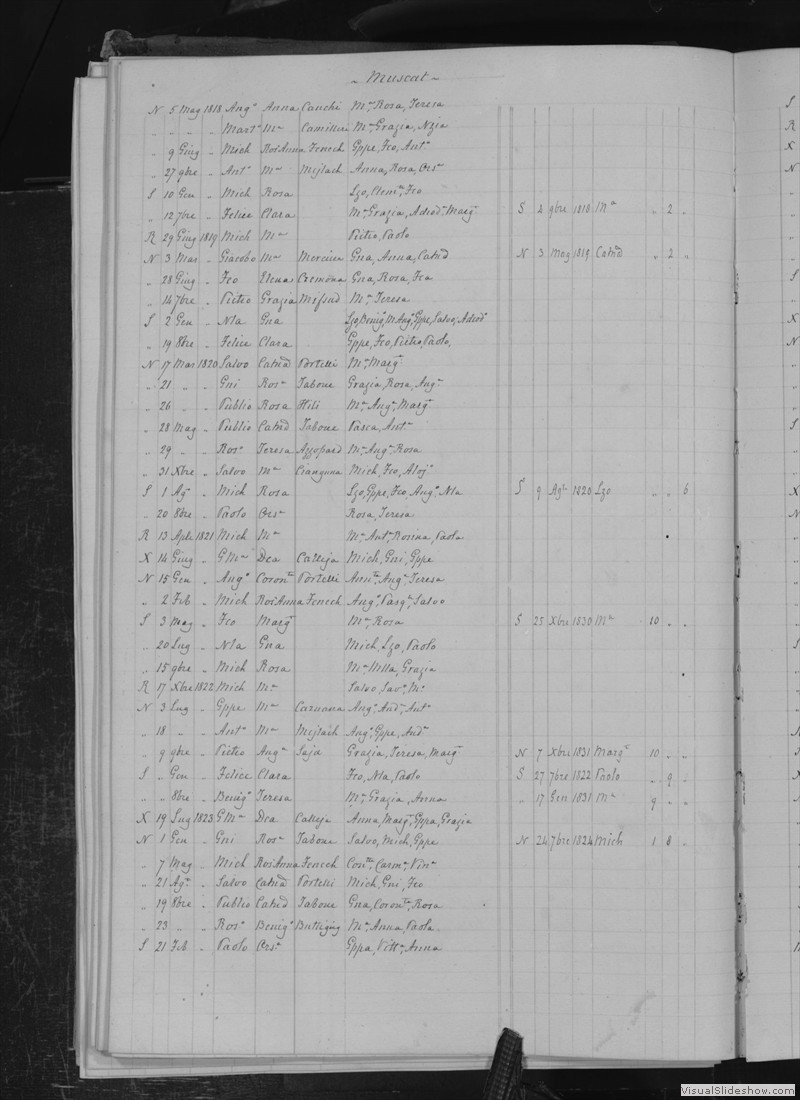 ~ Muscat ~
N 5 Mag 1818 Angº Anna Cauchi Mª Rosa, Teresa
„ „ „ „ Martº Mª Camilleri Mª Grazia, Nzia
„ 9 Giug „ Mich RosªAnna Fenech Gppe, Fco, Antº
„ 27 9bre „ Antº Mª Mejlach Anna, Rosa, Orsª
S 10 Gen „ Mich Rosa Lzo, Clemte, Fco
„ 12 7bre „ Felice Clara Mª Grazia, Adeodª, Margª S 2 9bre 1818 Mª „ 2 „
R 29 Giug 1819 Mich Mª Pietro, Paolo
N 3 Mar „ Giacobo Mª Mercieca Gna, Anna, Catnª N 3 Mag 1819 Catnª „ 2 „
„ 28 Giug „ Fco Elena Cremona Gna, Rosa, Fca
„ 14 7bre „ Pietro Grazia Mifsud Mª Teresa
S 2 Gen „ Nla Gna Lzo, Benigº, M Angº, Gppe, Salvo, Adeodº
„ 19 8bre „ Felice Clara Gppe, Fco, Pietro, Paolo,
N 17 Mar 1820 Salvo Catnª Portelli Mª Margª
„ 21 „ „ Gni Rosª Tabone Grazia, Rosa, Angª
„ 26 „ „ Publio Rosa Hili Mª Angª, Margª
„ 28 Mag „ Publio Catnª Tabone Pasca, Antª
„ 29 „ „ Rosº Teresa Azzopard Mª Angª Rosa
„ 31 Xbre „ Salvo Mª Ciangura Mich, Fco, Alojº
S 1 Agº „ Mich Rosa Lzo, Gppe, Fco, Angº, Nla S 9 Agº 1820 Lzo „ „ 6
„ 20 8bre „ Paolo Orsª Rosa, Teresa
R 13 Aple 1821 Mich Mª Mª Antª Rosina, Paola
X 14 Giug „ G Mª Dea Calleja Mich, Gni, Gppe
N 15 Gen „ Angº Coronª Portelli Annª, Angª Teresa
„ 2 Feb „ Mich RosªAnna Fenech Angº, Pasqº, Salvo
S 3 Mag „ Fco Margª Mª Rosa S 25 Xbre 1830 Mª 10 „ „
„ 20 Lug „ Nla Gna Mich, Lzo, Paolo
„ 15 9bre „ Mich Rosa Mª Grazia
R 17 Xbre 1822 Mich Mª Salvo, Savº, Mª
N 3 Lug „ Gppe Mª Caruana Angº, Andª, Antº
„ 18 „ „ Antº Mª Mejlach Angº, Gppe, Andª
„ 9 9bre „ Pietro Angª Said Grazia, Teresa, Margª N 7 Xbre 1831 Margª 10 „ „
S „ Gen „ Felice Clara Fco, Nla, Paolo S 27 7bre 1822 Paolo „ 9 „
„ „ 8bre „ Benigº Teresa Mª Grazia, Anna „ 17 Gen 1831 Mª 9 „ „
X 19 Lug 1823 G Mª Dea Calleja Anna, Margª, Gppa, Grazia
N 1 Gen „ Gni Rosª Tabone Salvo, Mich, Gppe N 24 7bre 1824 Mich 1 8 „
„ 7 Mag „ Mich RosªAnna Fenech Conª, Carmª, Vinª
„ 21 Agº „ Salvo Catnª Portelli Mich, Gni, Fco
„ 19 8bre „ Publio Catnª Tabone Gna, Coronª, Rosa
„ 23 „ „ Rosº Benigª Buttigieg Mª Anna, Paola
S 21 Feb „ Paolo Orsª Gppa, Vittª, Anna
VisualSlideshow.com